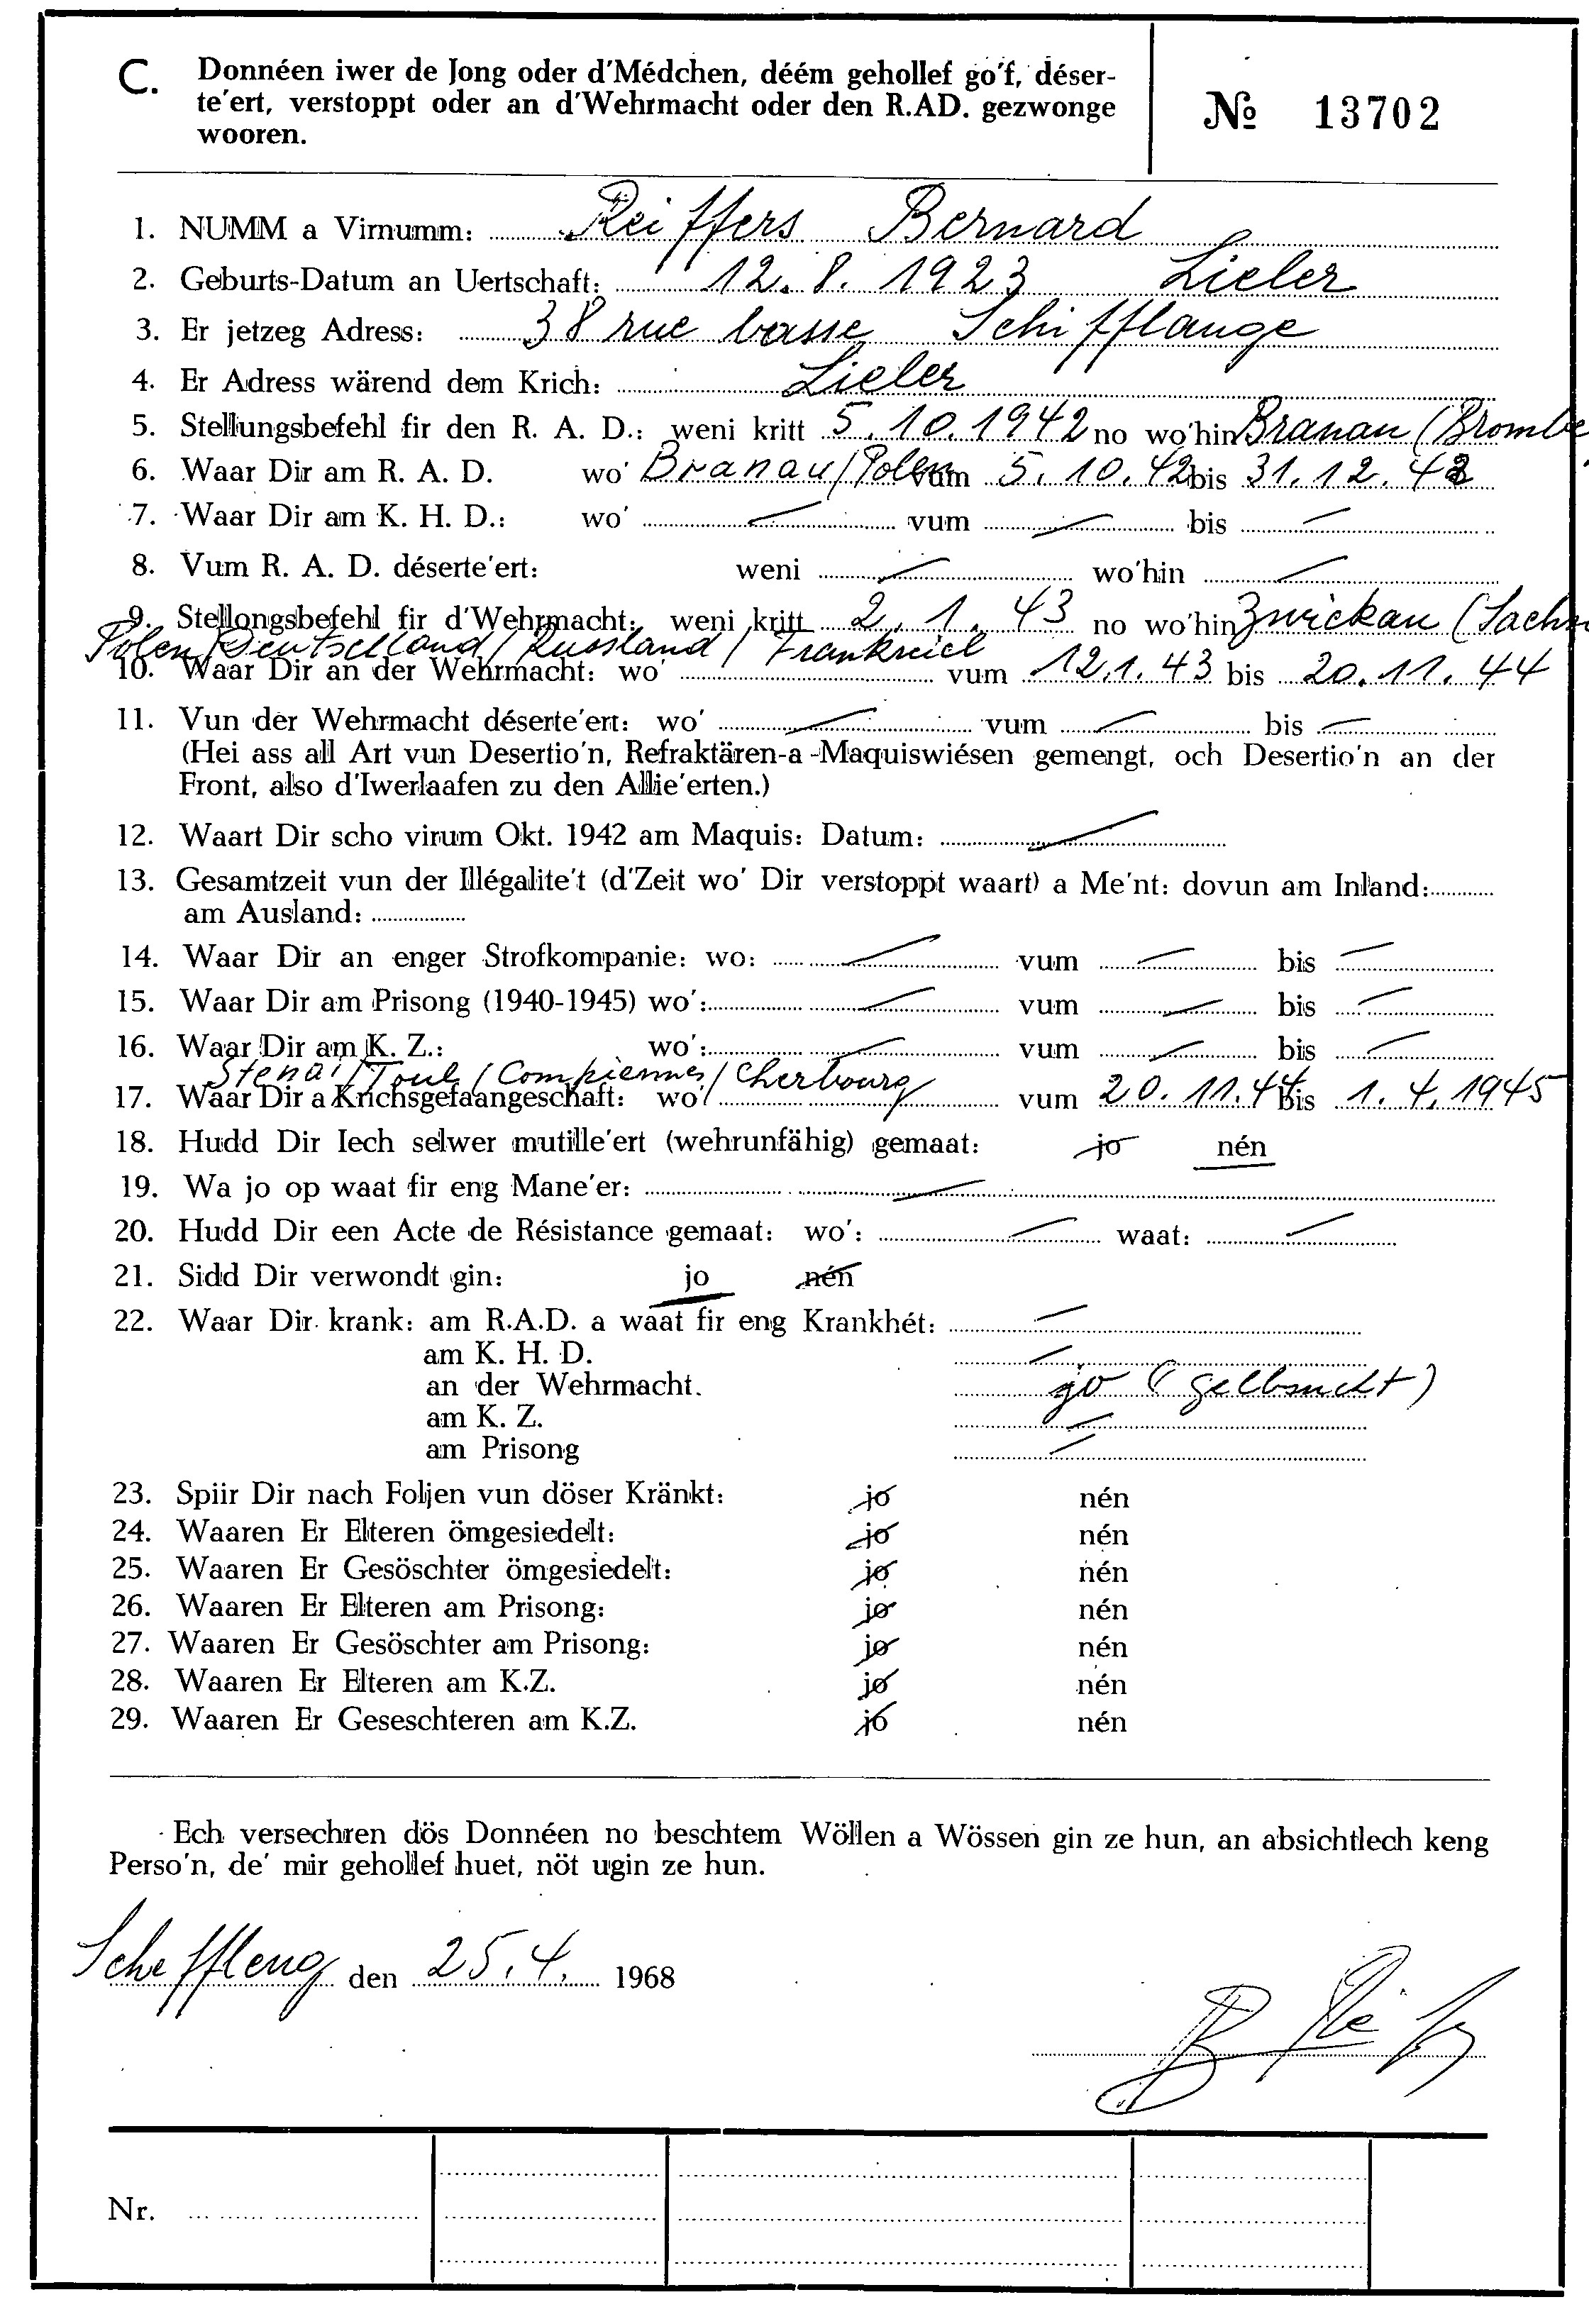 C. Donnéen iwer de Jong oder d'Médchen, déém gehollef go'f, déser-
te'ert, verstoppt oder an d'Wehrmacht oder den R.AD. gezwonge
wooren.
№ 13702
1. NUMM a Virnumm: Reiffers Bernard
2. Geburts-Datum an Uertschaft: 12. 8. 1923 Lieler
3. Er jetzeg Adress: 38 rue basse Schifflange
4. Er Adress wärend dem Krich: Lieler
5. Stellungsbefehl fir den R. A. D.: weni kritt 5. 10. 1942 no wo'hin Branau (Brombe
6. Waar Dir am R. A. D. wo' Branau/Polen vum 5. 10. 42 bis 31. 12. 42
7. Waar Dir am K. H. D.: wo' vum bis
8. Vum R. A. D. déserte'ert: weni wo'hin
9. Stellongsbefehl fir d'Wehrmacht: weni kritt 2. 1. 43 no wo'hin Zwickau (Sachs
Polen/Deutschland/Russland/Frankreich
10. Waar Dir an der Wehrmacht: wo' vum 12. 1. 43 bis 20. 11. 44
11. Vun der Wehrmacht déserte'ert: wo' vum bis
(Hei ass all Art vun Desertio'n, Refraktären-a-Maquiswiésen gemengt, och Desertio'n an der
Front, also d'Iwerlaafen zu den Allie'erten.)
12. Waart Dir scho virum Okt. 1942 am Maquis: Datum:
13. Gesamtzeit vun der Illégalite't (d'Zeit wo' Dir verstoppt waart) a Me'nt: dovun am Inland:
am Ausland:
14. Waar Dir an enger Strofkompanie: wo: vum bis
15. Waar Dir am Prisong (1940-1945) wo': vum bis
16. Waar Dir am K. Z.: wo': vum bis
Stenai/Toul/Compiennes/Cherbourg
17. Waar Dir a Krichsgefaangeschaft: wo' vum 20. 11. 44 bis 1. 4. 1945
18. Hudd Dir Iech selwer mutille'ert (wehrunfähig) gemaat: jo nén
19. Wa jo op waat fir eng Mane'er:
20. Hudd Dir een Acte de Résistance gemaat: wo': waat:
21. Sidd Dir verwondt gin: jo nén
22. Waar Dir krank: am R.A.D. a waat fir eng Krankhét:
am K. H. D.
an der Wehrmacht. jo (gelbsucht)
am K. Z.
am Prisong
23. Spiir Dir nach Foljen vun döser Kränkt: jo nén
24. Waaren Er Elteren ömgesiedelt: jo nén
25. Waaren Er Gesöschter ömgesiedelt: jo nén
26. Waaren Er Elteren am Prisong: jo nén
27. Waaren Er Gesöschter am Prisong: jo nén
28. Waaren Er Elteren am K.Z. jo nén
29. Waaren Er Geseschteren am K.Z. jo nén
Ech versechren dös Donnéen no beschtem Wöllen a Wössen gin ze hun, an absichtlech keng
Perso'n, de' mir gehollef huet, nöt ugin ze hun.
Scheffleng den 25. 4. 1968
Nr.